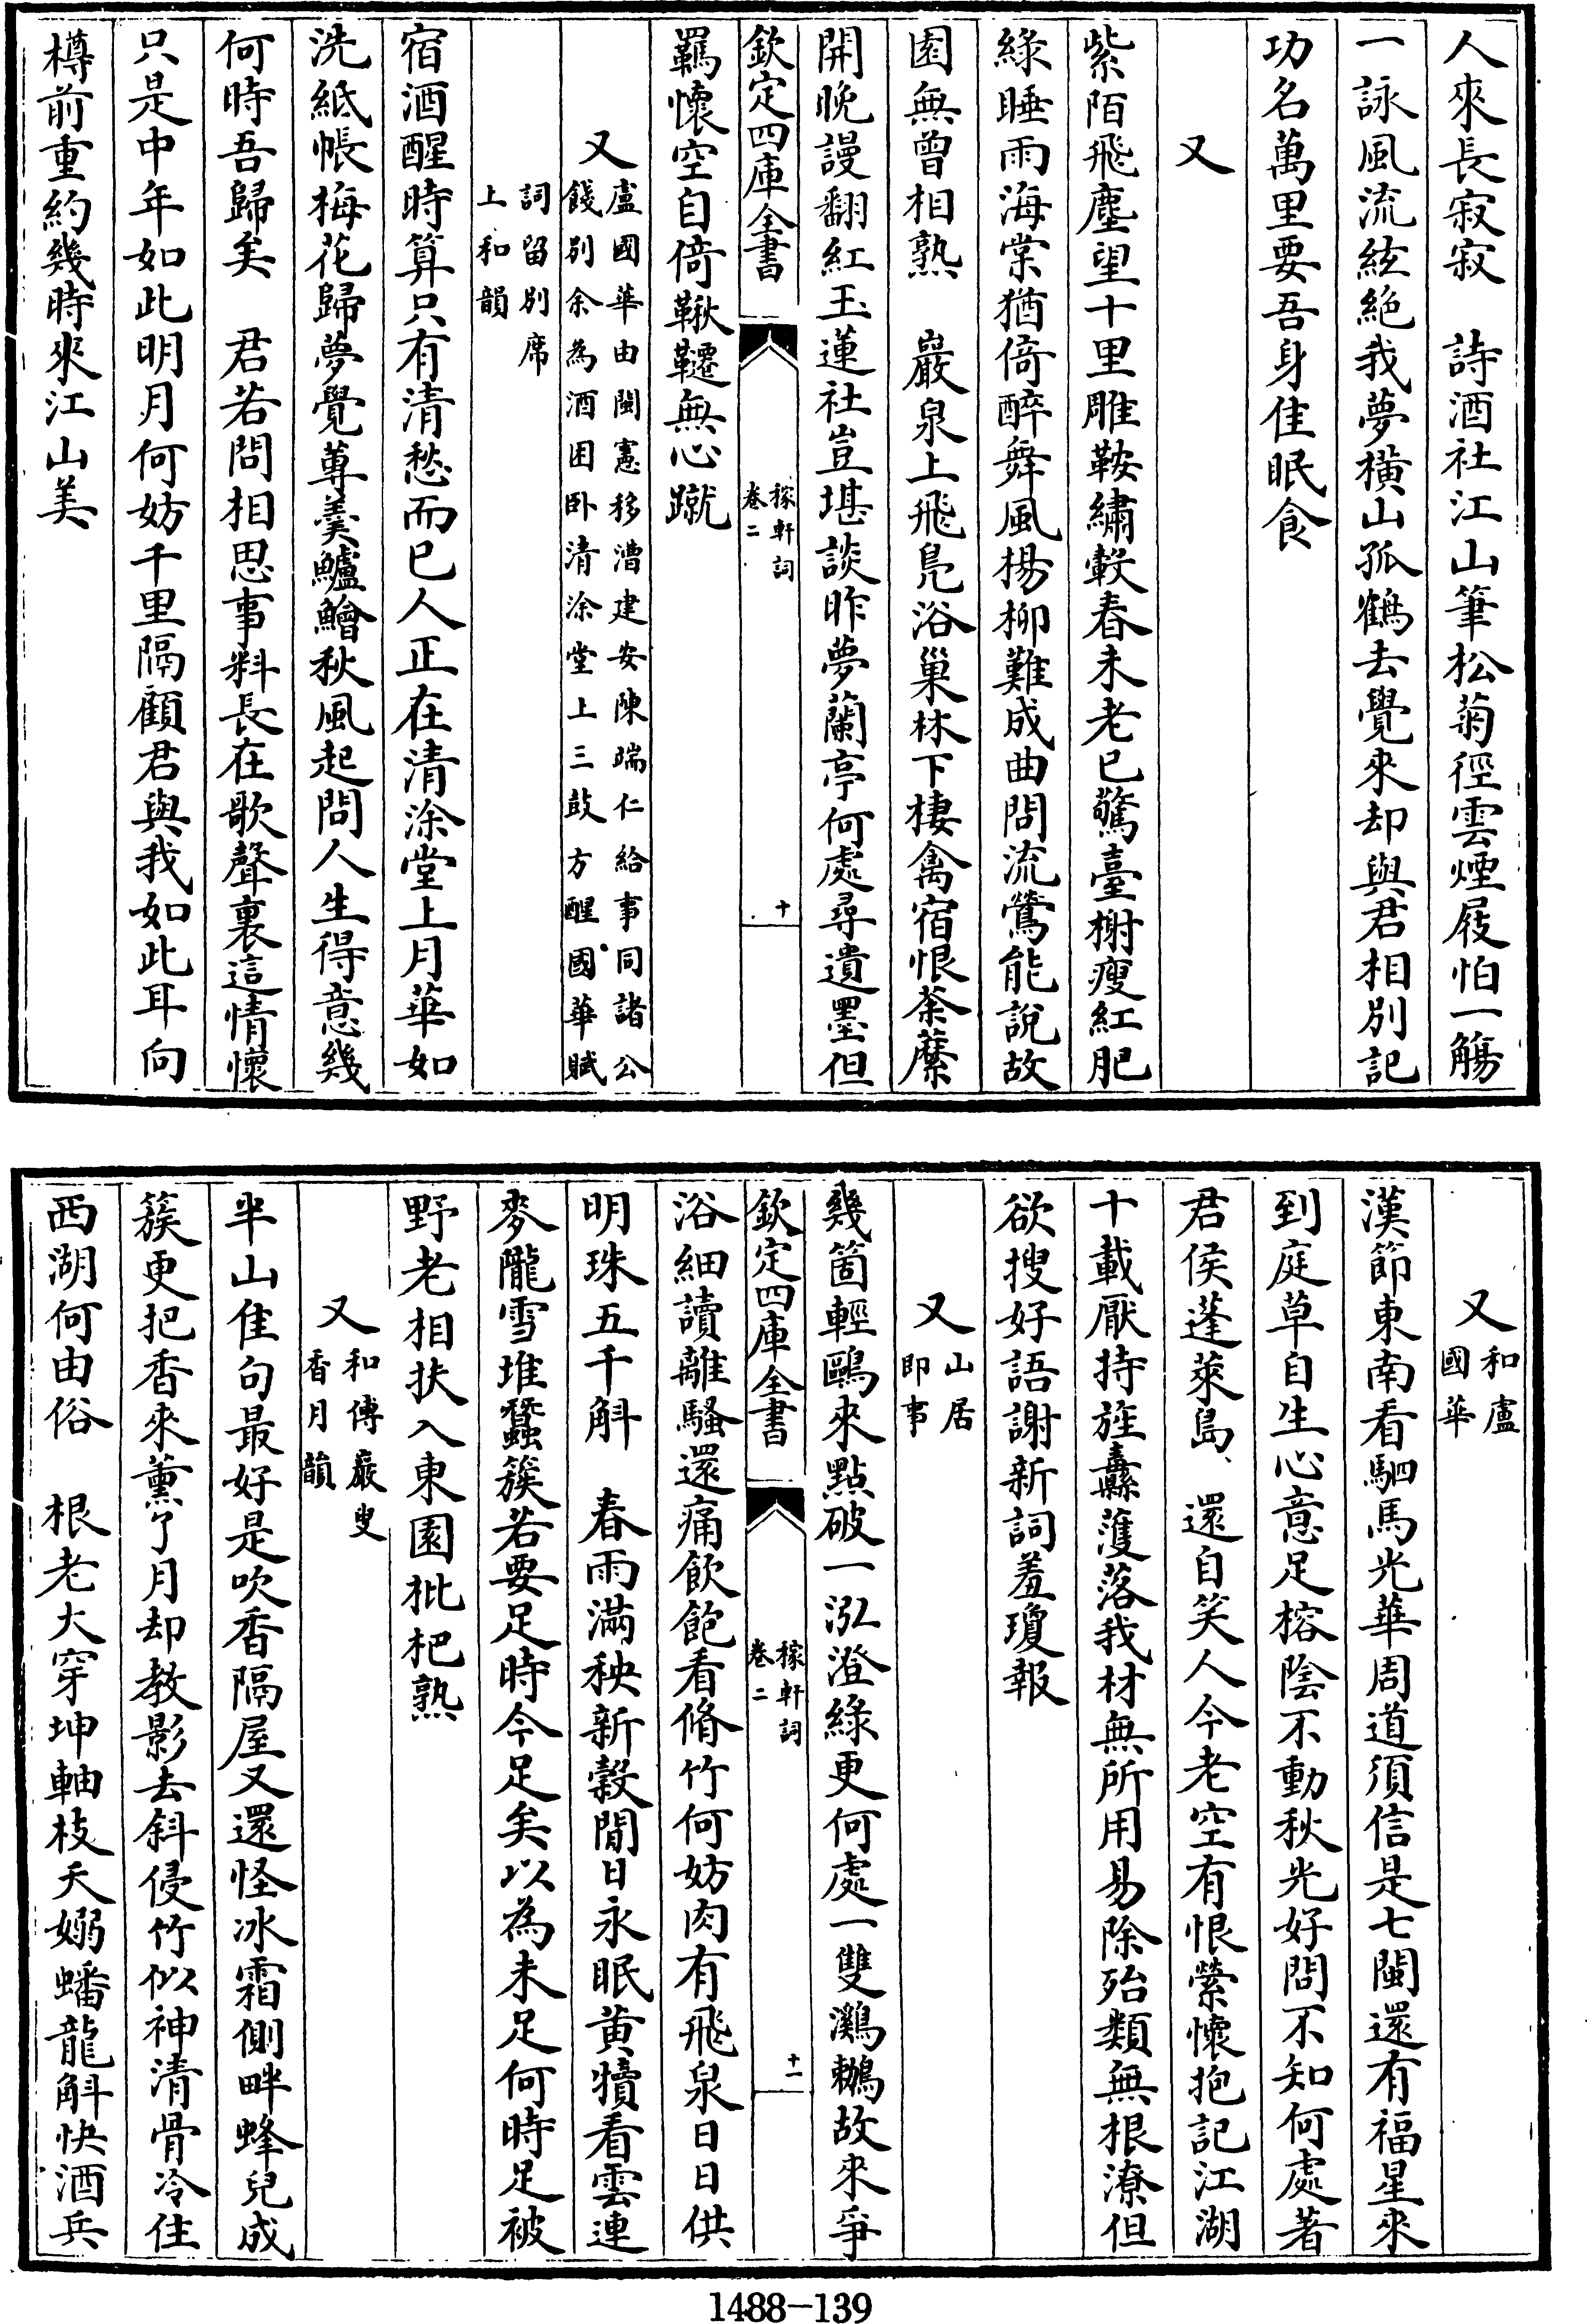 人來長寂寂　詩酒社江山筆松菊徑雲煙屐怕一觴
一詠風流絃絶我夢横山孤鶴去覺來却與君相別記
功名萬里要吾身佳眠食
又
紫陌飛塵望十里雕鞍繡轂春未老已驚臺榭瘦紅肥
綠睡雨海棠猶倚醉舞風楊柳難成曲問流鶯能說故
園無曽相熟　巖泉上飛鳬浴巢林下棲禽宿恨荼蘼
開晚謾翻紅玉蓮社豈堪談昨夢蘭亭何處尋遺墨但
欽定四庫全書
稼軒詞
卷二
十
羈懷空自倚鞦韆無心蹴
又
盧國華由閩憲移漕建安陳端仁給事同諸公
餞別余為酒困卧清涂堂上三鼓方醒國華賦
詞留別席
上和韻
宿酒醒時算只有清愁而已人正在清涂堂上月華如
洗紙帳梅花歸夢覺蓴羮鱸鱠秋風起問人生得意幾
何時吾歸矣　君若問相思事料長在歌聲裏這情懷
只是中年如此明月何妨千里隔顧君與我如此耳向
樽前重約幾時來江山美
又
和盧
國華
漢節東南看駟馬光華周道須信是七閩還有福星來
到庭草自生心意足榕陰不動秋光好問不知何處著
君侯蓬萊島　還自笑人今老空有恨縈懷抱記江湖
十載厭持旌纛濩落我材無所用易除殆類無根潦但
欲搜好語謝新詞羞瓊報
又
山居
即事
幾箇輕鷗來點破一泓澄綠更何處一雙鸂鶒故來爭
欽定四庫全書
稼軒詞
卷二
十一
浴細讀離騷還痛飲飽看脩竹何妨肉有飛泉日日供
明珠五千斛　春雨滿秧新穀閒日永眠黄犢看雲連
麥隴雪堆蠶簇若要足時今足矣以為未足何時足被
野老相扶入東園枇杷熟
又
和傅巖叟
香月韻
半山佳句最好是吹香隔屋又還怪冰霜側畔蜂兒成
簇更把香來薰了月却教影去斜侵竹似神清骨冷住
西湖何由俗　根老大穿坤軸枝夭嫋蟠龍斛快酒兵
1488—139